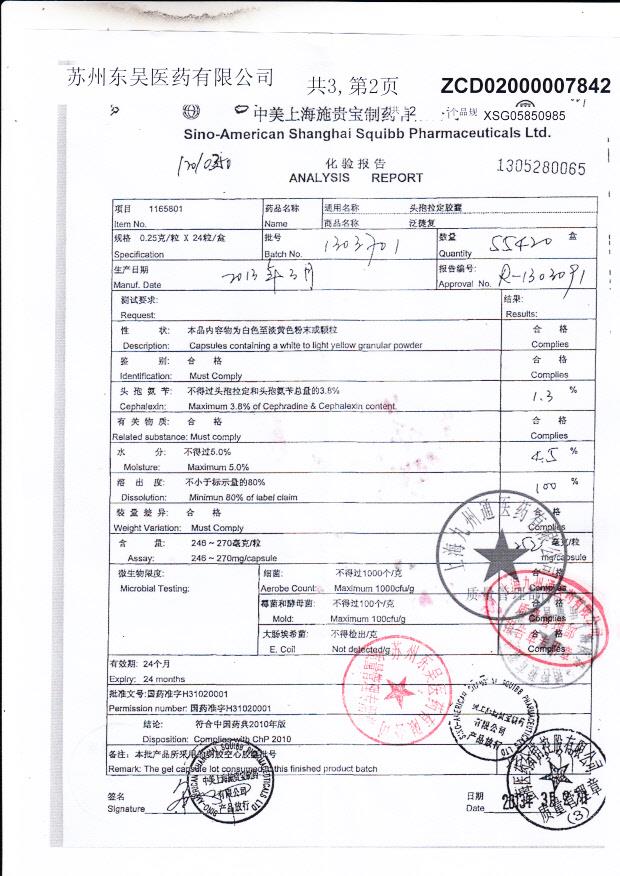 苏州东吴医药有限公司 共3,第2页 ZCD02000007842
中美上海施贵宝制药 XSG05850985
Sino-American Shanghai Squibb Pharmaceuticals Ltd.
化验报告 1305280065
ANALYSIS REPORT
项目 1165801 药品名称 通用名称 头孢拉定胶囊
Item No. Name 商品名称 泛捷复
规格 0.25克/粒 X 24粒/盒 批号 1303701 数量 55420 盒
Specification Batch No. Quantity
生产日期 2013年3月 报告编号: R-1303091
Manuf. Date Approval No.
测试要求: 结果:
Request: Results:
性 状: 本品内容物为白色至淡黄色粉末或颗粒 合 格
Description: Capsules containing a white to light yellow granular powder Complies
鉴 别: 合 格 合 格
Identification: Must Comply Complies
头 孢 氨 苄: 不得过头孢拉定和头孢氨苄总量的3.8% 1.3 %
Cephalexin: Maximum 3.8% of Cephradine & Cephalexin content.
有 关 物 质: 合 格 合 格
Related substance: Must comply Complies
水 分: 不得过5.0% 4.5 %
Moisture: Maximum 5.0%
溶 出 度: 不小于标示量的80% 100 %
Dissolution: Minimun 80% of label claim
装 量 差 异: 合 格 合 格
Weight Variation: Must Comply Complies
含 量: 246～270毫克/粒 毫克/粒
Assay: 246～270mg/capsule mg/capsule
微生物限度: 细菌: 不得过1000个/克 合 格
Microbial Testing: Aerobe Count: Maximum 1000cfu/g Complies
霉菌和酵母菌: 不得过100个/克 合 格
Mold: Maximum 100cfu/g Complies
大肠埃希菌: 不得检出/克 合 格
E. Coil Not detected/g Complies
有效期: 24个月
Expiry: 24 months
批准文号:国药准字H31020001
Permission number: 国药准字H31020001
结论: 符合中国药典2010年版
Disposition: Complies with ChP 2010
备注: 本批产品所采用的药胶空心胶囊批号
Remark: The gel capsule lot consumed at this finished product batch
签名 日期
Signature Date
上海九州通医药有限公司
苏州东吴医药有限公司
SINO-AMERICAN SHANGHAI SQUIBB PHARMACEUTICALS LTD
中美上海施贵宝制药
有限公司
产品放行
质量管理章
(3)